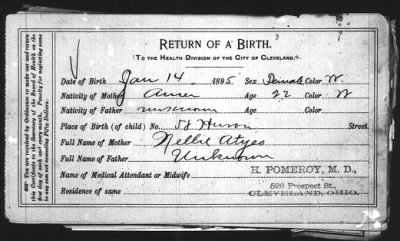 RETURN OF A BIRTH.
TO THE HEALTH DIVISION OF THE CITY OF CLEVELAND.
Date of Birth Jan 14 1895 Sex Female Color W.
Nativity of Mother Amer Age 22 Color W
Nativity of Father unknown Age Color
Place of Birth (of child) No. 58 Huron Street.
Full Name of Mother Nellie Atyeo
Full Name of Father Unknown
Name of Medical Attendant or Midwife H. POMEROY, M. D.,
Residence of same 526 Prospect St.,
CLEVELAND, OHIO.
You are required by Ordinance to make out and return
this Certificate to the Secretary of the Board of Health on the
day of each and every month. Penalty for neglecting same
not exceeding Fifty Dollars.